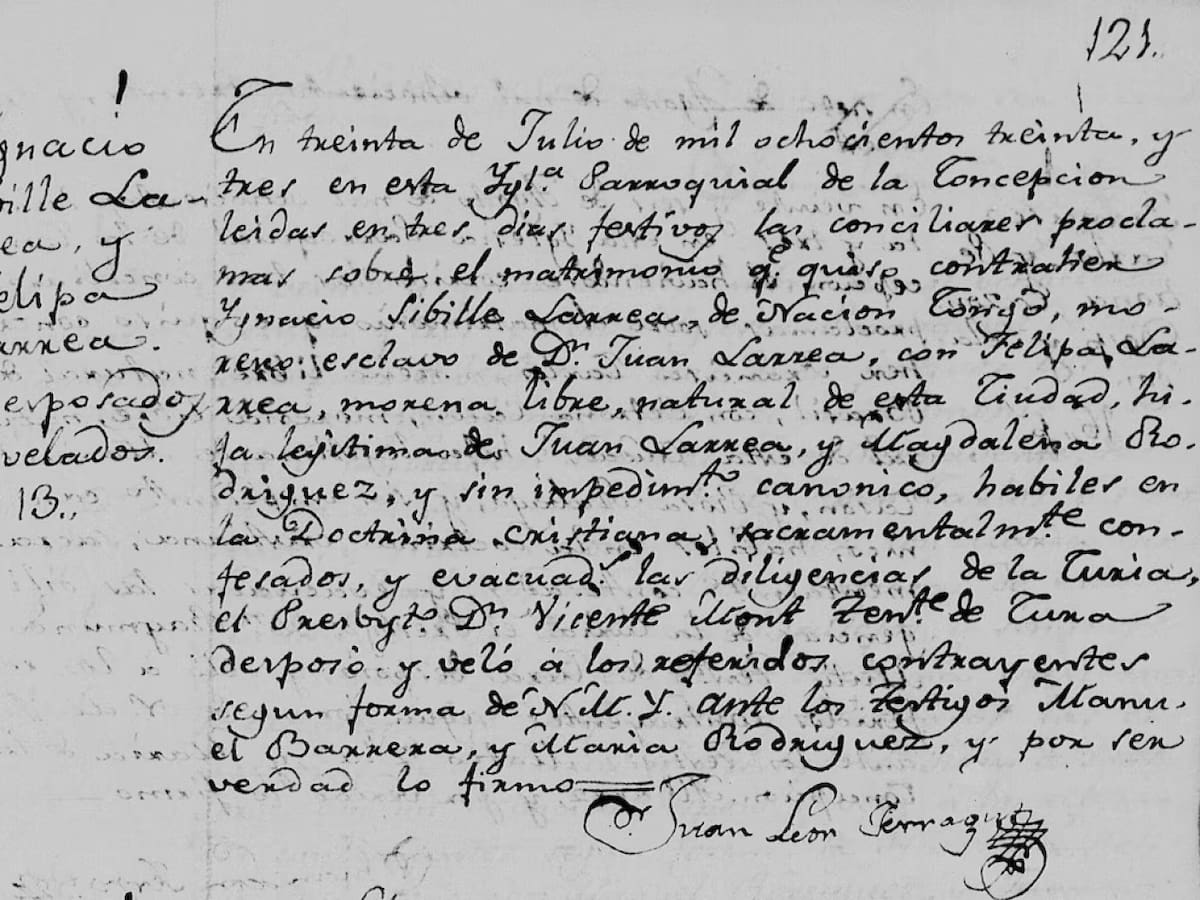 121.
gnacio
bille La-
ea, y
elipa
arrea.
esposados
velados.
13.,
En treinta de Julio de mil ochocientos treinta, y
tres en esta Ygl.ª Parroquial de la Concepcion
leidas en tres dias festivos las conciliares procla-
mas sobre el matrimonio q.e quise contraher
Ygnacio Sibille Larrea, de Nacion Congo, mo-
reno esclavo de D.n Juan Larrea, con Felipa La-
rrea, morena libre, natural de esta Ciudad, hi-
ja legitima de Juan Larrea, y Magdalena Ro-
driguez, y sin impedim.to canonico, habiles en
la Doctrina cristiana, sacramentalm.te con-
fesados, y evacuad.s las diligencias de la Curia,
el Presbyt.o D.n Vicente Mont Ten.te de Cura
desposó y veló á los referidos contrayentes
segun forma de N. M. Y. ante los Testigos Manu-
el Barrera, y Maria Rodriguez, y por ser
verdad lo firmo
D.r Juan Leon Ferragut